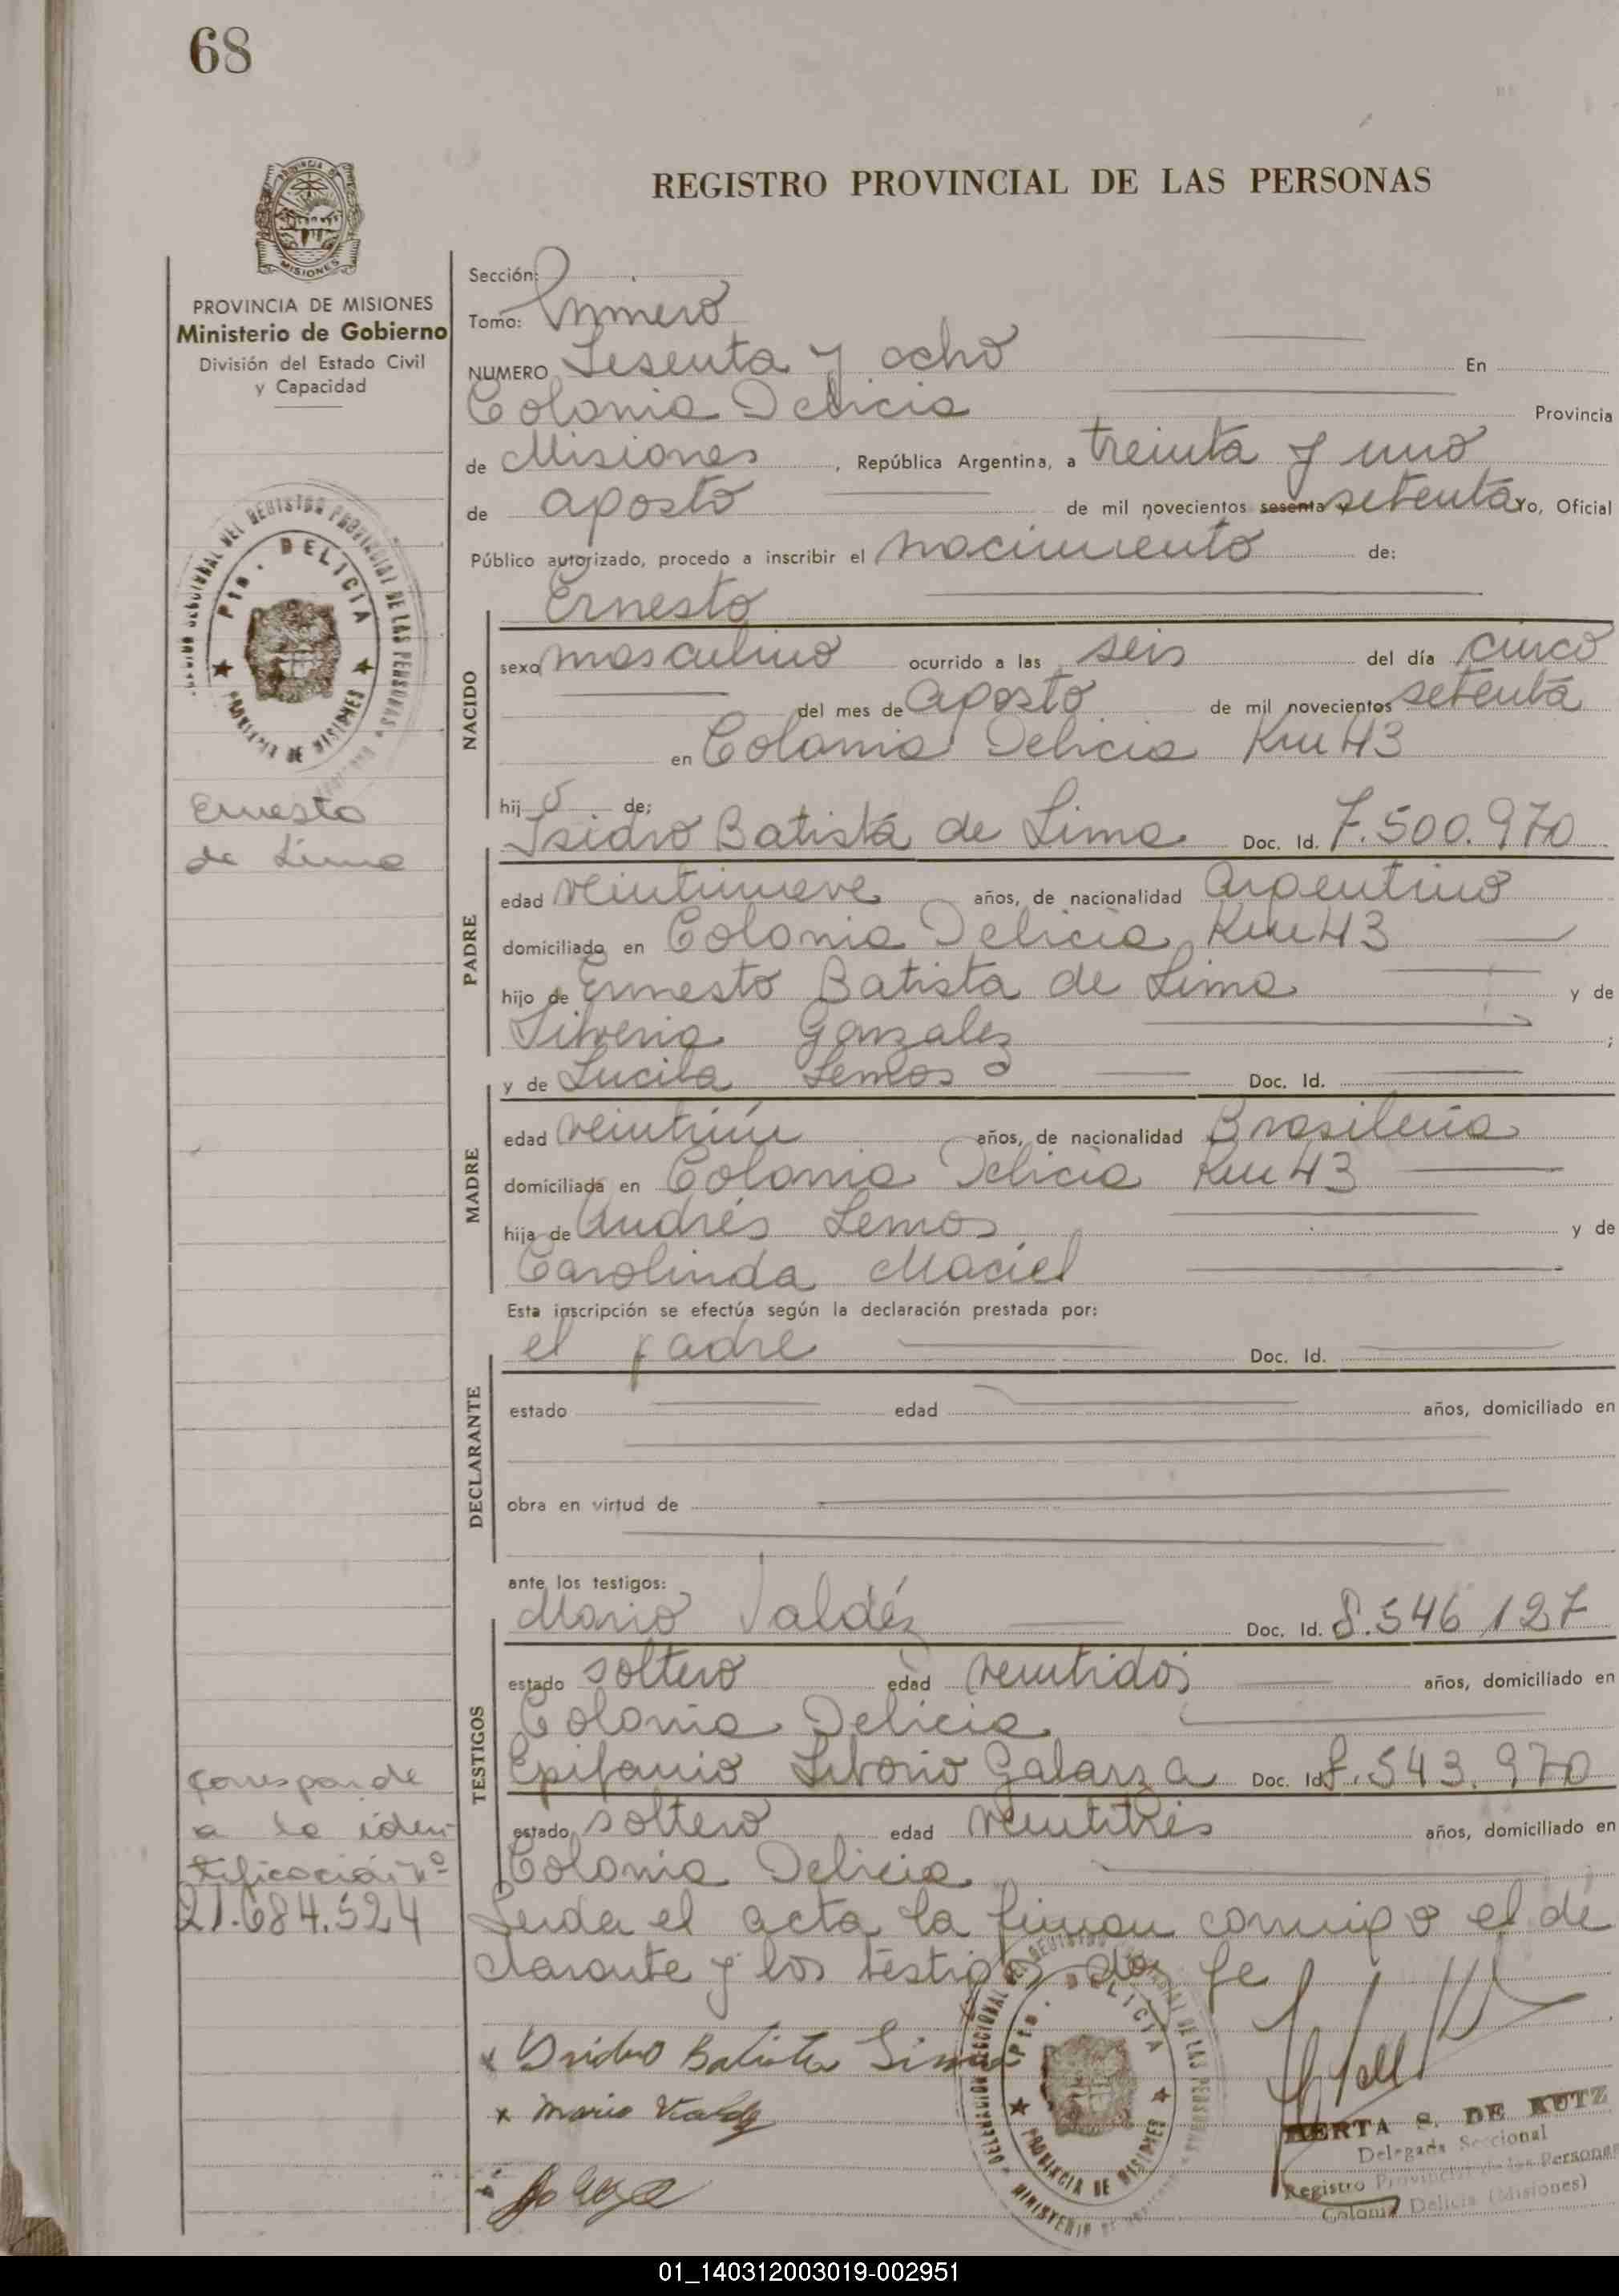 68
REGISTRO PROVINCIAL DE LAS PERSONAS
PROVINCIA DE MISIONES
Ministerio de Gobierno
División del Estado Civil
y Capacidad
Sección:
Tomo: Primero
NUMERO Sesenta y ocho En
Colonia Delicia Provincia
de Misiones, República Argentina, a treinta y uno
de agosto de mil novecientos sesenta y setenta Yo, Oficial
Público autorizado, procedo a inscribir el nacimiento de:
Ernesto
NACIDO
sexo masculino ocurrido a las seis del día cinco
del mes de agosto de mil novecientos setenta
en Colonia Delicia Km 43
hijo de:
Isidro Batista de Lima Doc. Id. 7.500.970
PADRE
edad veintinueve años, de nacionalidad Argentino
domiciliado en Colonia Delicia Km 43
hijo de Ernesto Batista de Lima y de
Silveria Gonzalez ;
y de Lucila Lemos Doc. Id.
MADRE
edad veintiún años, de nacionalidad Brasileña
domiciliada en Colonia Delicia Km 43
hija de Andrés Lemos y de
Carolinda Maciel
Esta inscripción se efectúa según la declaración prestada por:
el padre Doc. Id.
DECLARANTE
estado edad años, domiciliado en
obra en virtud de
ante los testigos:
Mario Valdéz Doc. Id. 8.546.127
TESTIGOS
estado soltero edad veintidos años, domiciliado en
Colonia Delicia
Epifanio Liborio Galarza Doc. Id. 8.543.970
estado soltero edad veintitrés años, domiciliado en
Colonia Delicia
Leida el acta la firman conmigo el de
clarante y los testigos doy fe
Ernesto
de Lima
Corresponde
a la iden
tificación Nº
21.684.524
DELEGACION SECCIONAL DEL REGISTRO PROVINCIAL DE LAS PERSONAS
Pto. DELICIA
PROVINCIA DE MISIONES
x Isidro Batista Lima
x Mario Valdez
HERTA S. DE RUTZ
Delegada Seccional
Registro Provincial de las Personas
Colonia Delicia (Misiones)
01_140312003019-002951